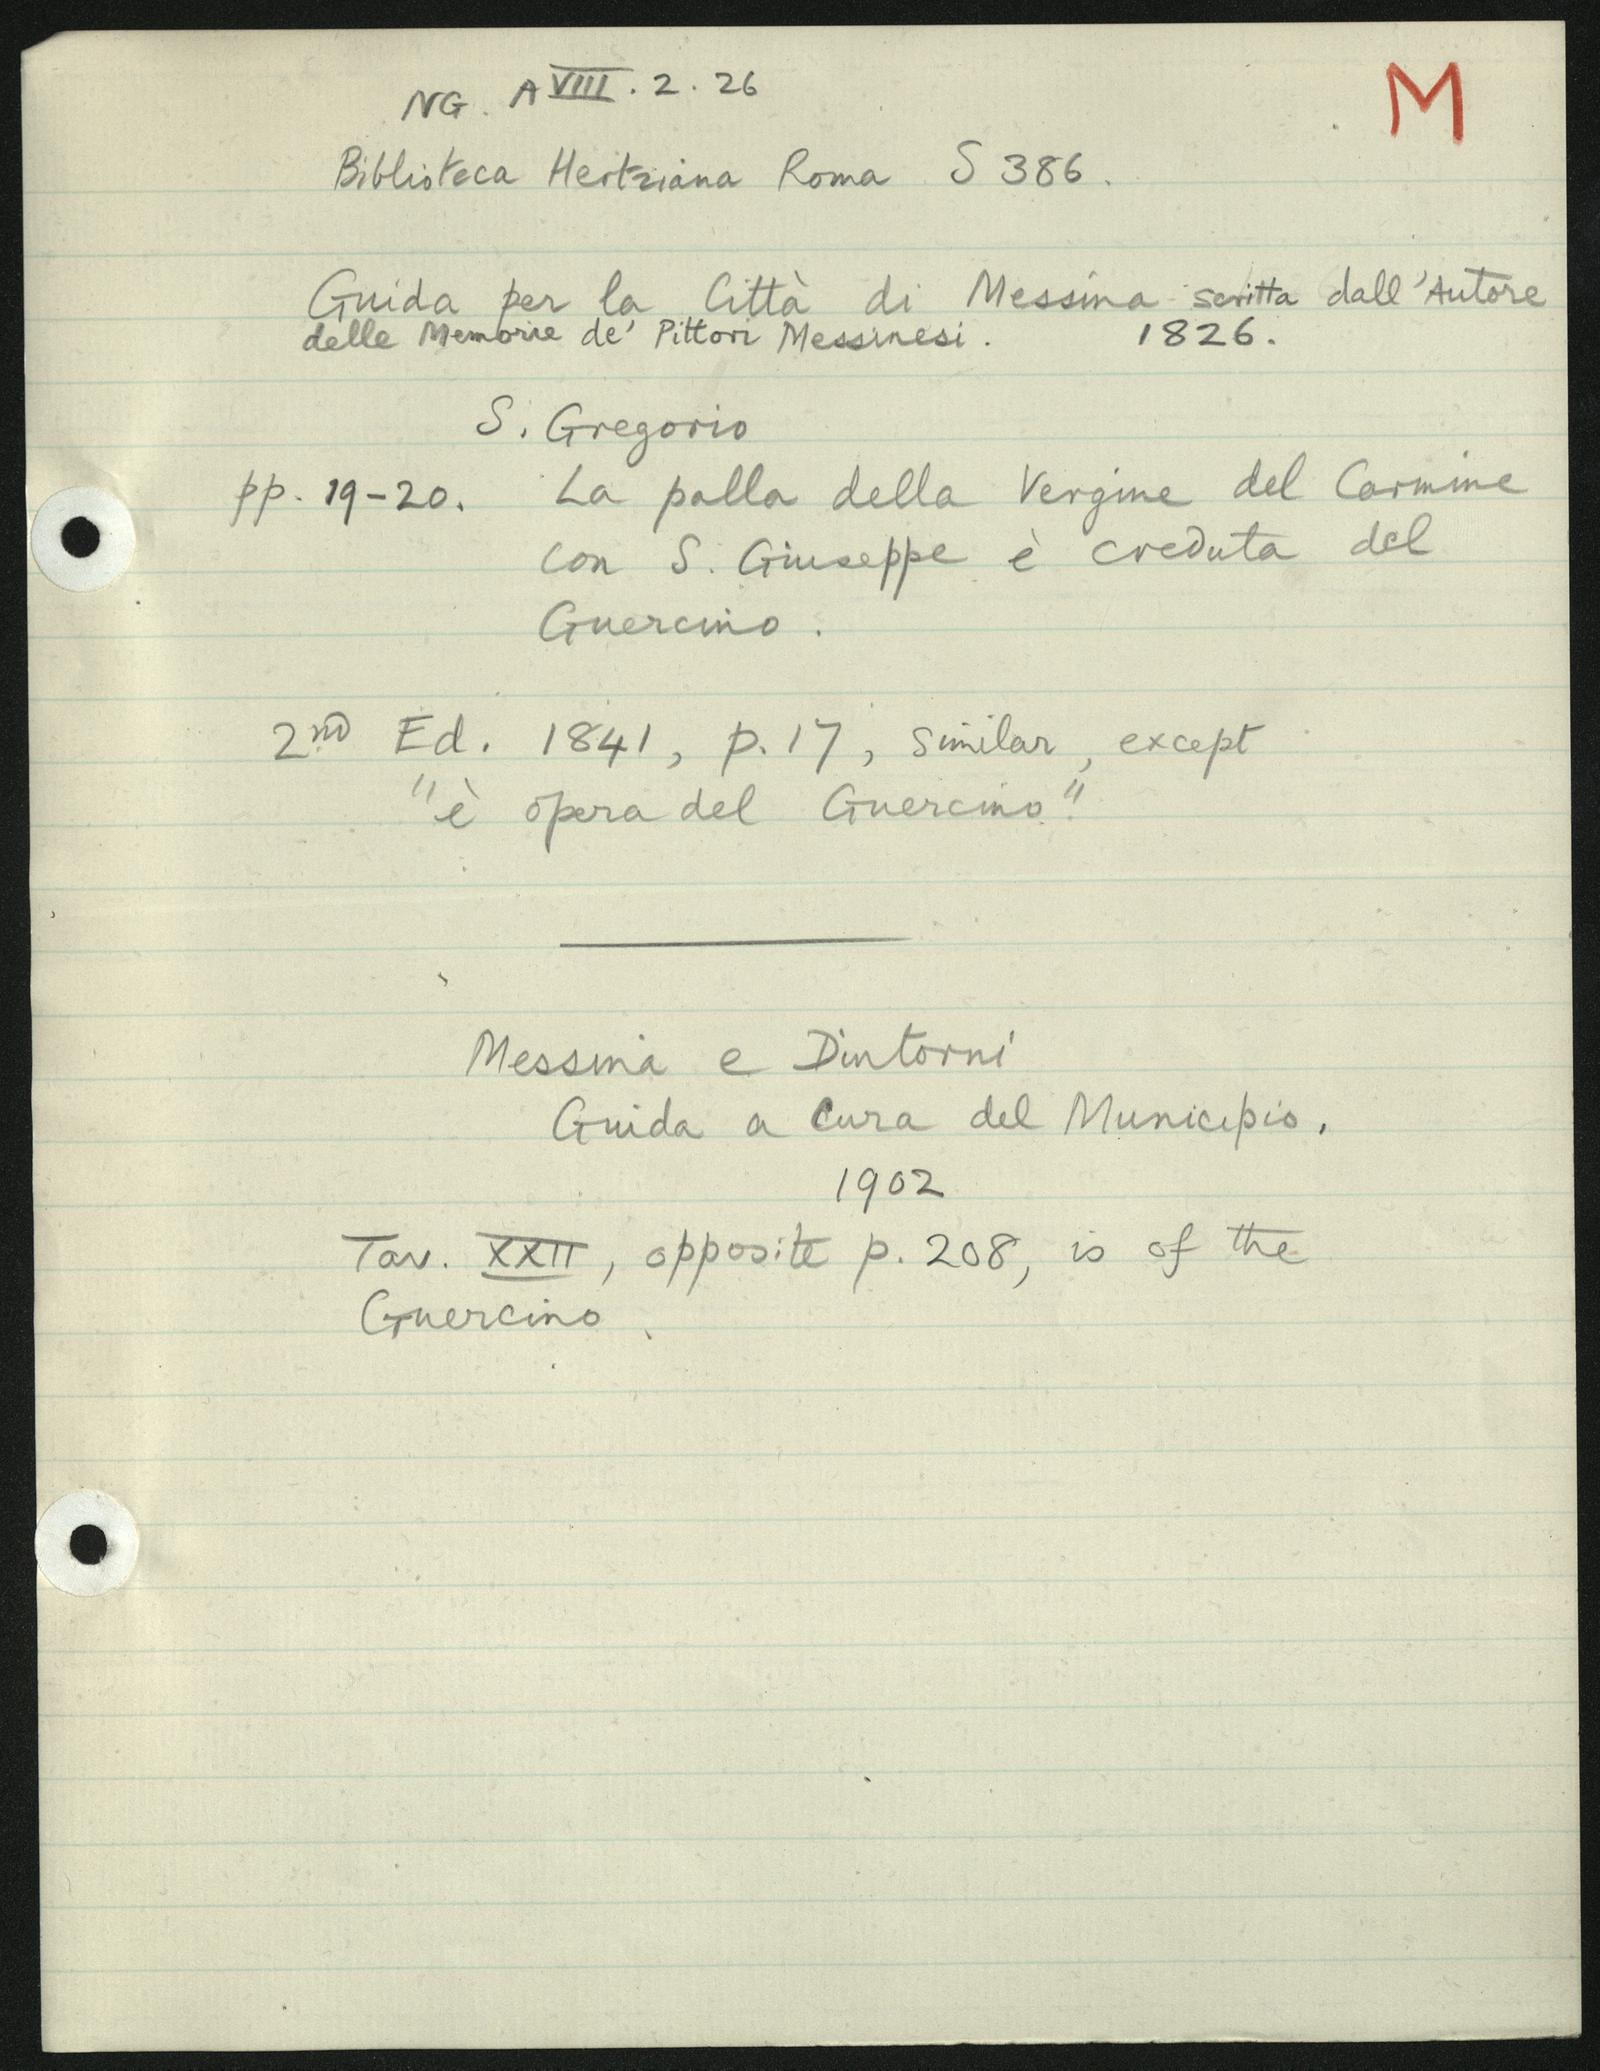 NG. A VIII. 2. 26
M
Biblioteca Hertziana Roma S 386.
Guida per la Città di Messina scritta dall'Autore
delle Memorie de' Pittori Messinesi. 1826.
S. Gregorio
pp. 19-20. La palla della Vergine del Carmine
con S. Giuseppe è creduta del
Guercino.
2nd Ed. 1841, p. 17, similar, except
"è opera del Guercino."
Messina e Dintorni
Guida a cura del Municipio.
1902
Tav. XXII, opposite p. 208, is of the
Guercino.